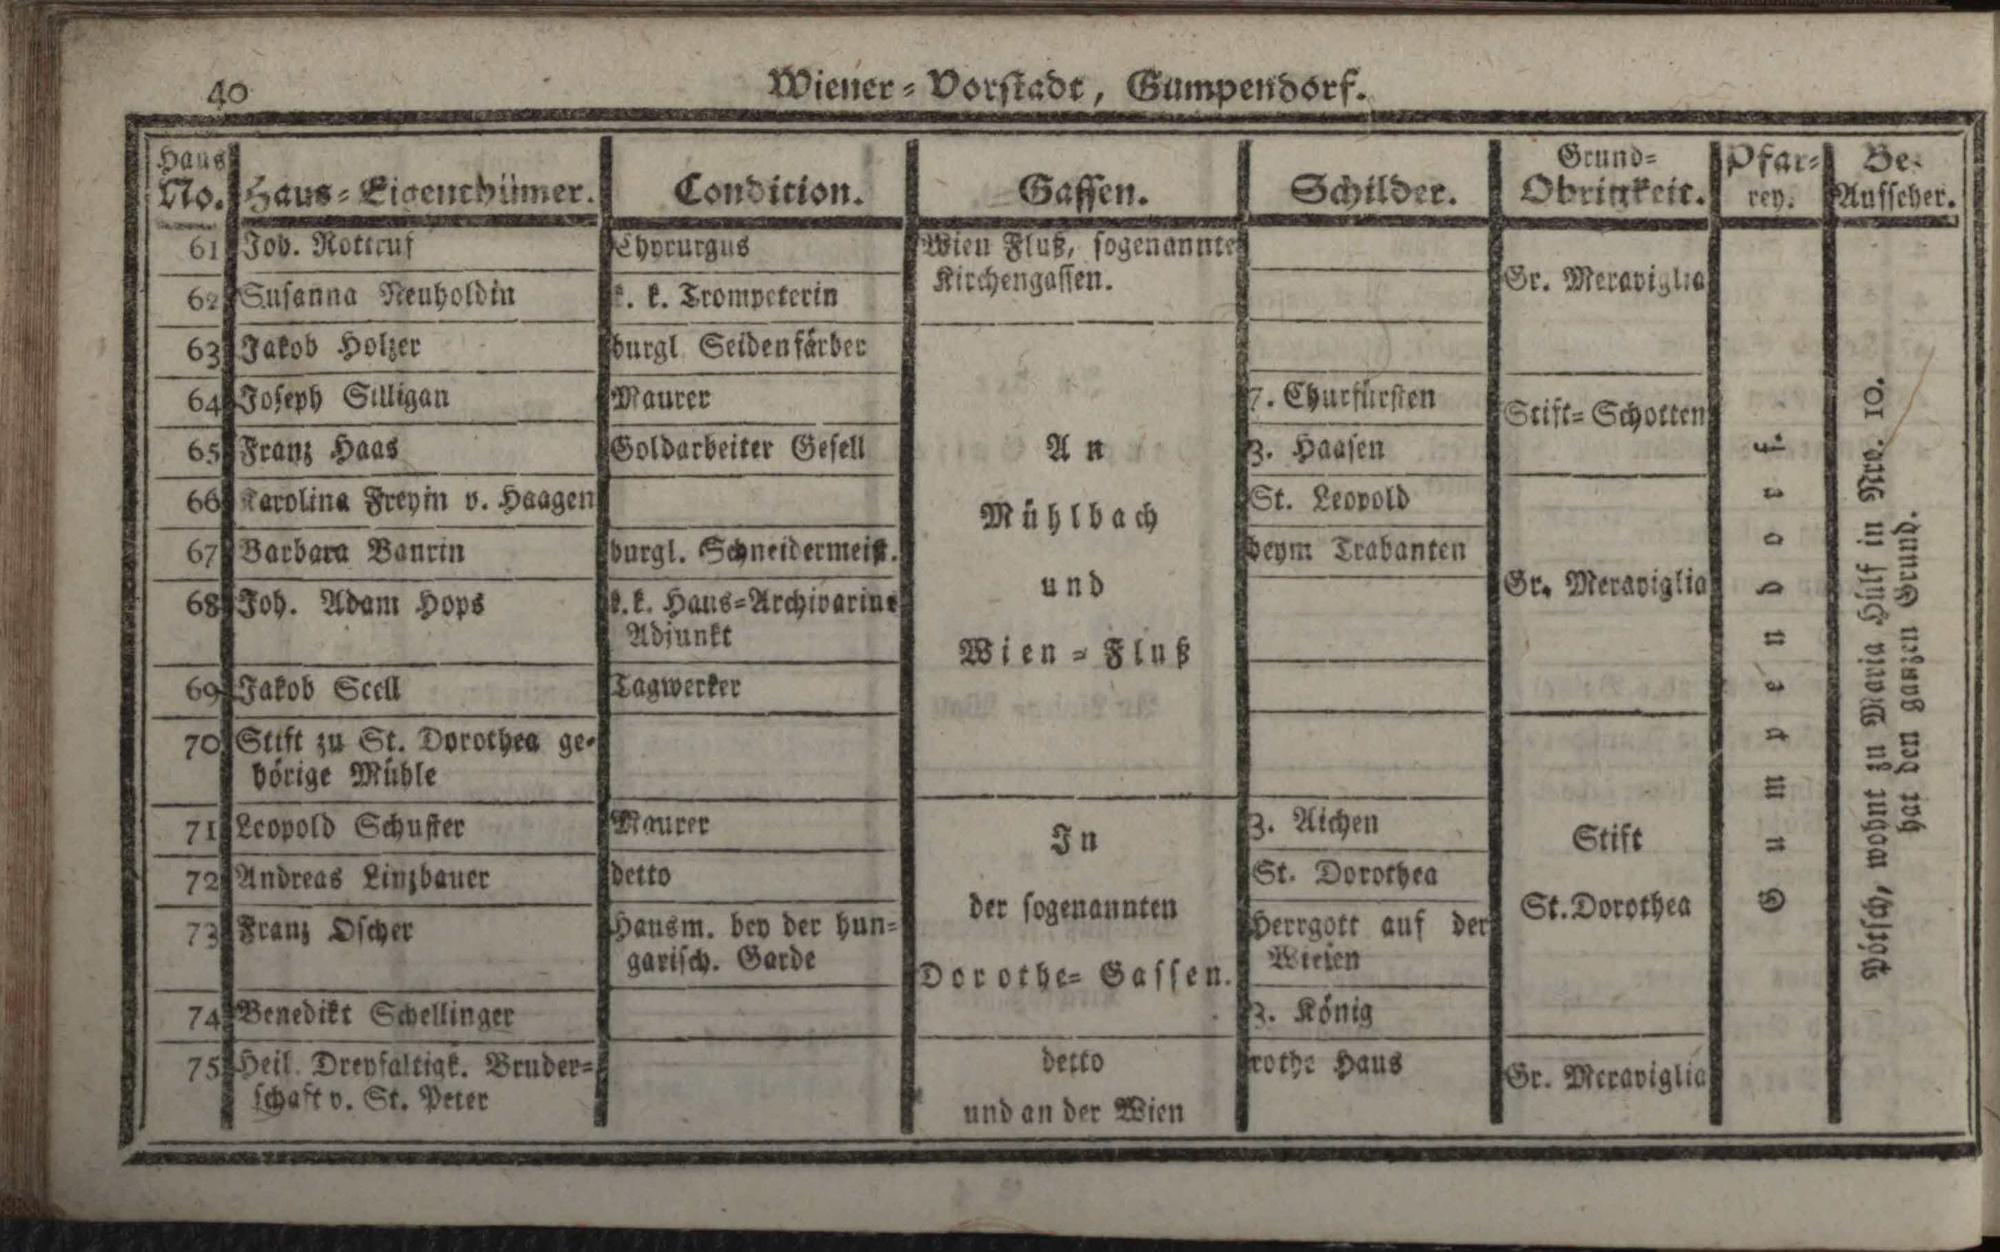 40
Wiener-Vorstadt, Gumpendorf.
Haus No. Haus-Eigenthümer. Condition. Gassen. Schilder. Grund-Obrigkeit. Pfar-rey. Be-Aufseher.
61 Joh. Nottruf Chyrurgus Wien Fluß, sogenannte
Kirchengassen. Gr. Meraviglia
62 Susanna Neuholdin k. k. Trompeterin
63 Jakob Holzer burgl Seidenfärber
64 Joseph Silligan Maurer 7. Churfürsten Stift-Schotten
65 Franz Haas Goldarbeiter Gesell An 3. Haasen
66 Karolina Freyin v. Haagen Mühlbach St. Leopold
67 Barbara Baurin burgl. Schneidermeist. und beym Trabanten Gr. Meraviglia
68 Joh. Adam Hops k.k. Haus-Archivarius
Adjunkt Wien-Fluß
69 Jakob Stell Tagwerker
70 Stift zu St. Dorothea ge-
hörige Mühle
71 Leopold Schuster Maurer In 3. Aichen Stift
72 Andreas Linzbauer detto der sogenannten St. Dorothea St. Dorothea
73 Franz Oscher Hausm. bey der hun-
garisch. Garde Dorothe-Gassen. Herrgott auf der
Wiesen
74 Benedikt Schellinger 3. König
75 Heil. Dreyfaltigk. Bruder-
schaft v. St. Peter detto rothe Haus Gr. Meraviglia
und an der Wien
Gumpendorf.
Pötsch, wohnt zu Maria Hülf in Nro. 10.
hat den ganzen Grund.